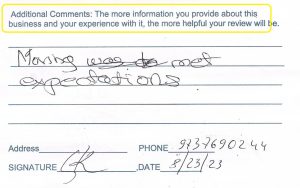 Additional Comments: The more information you provide about this
business and your experience with it, the more helpful your review will be.
Moving met
expectations.
Address
PHONE 9737690244
SIGNATURE
DATE 8/23/23